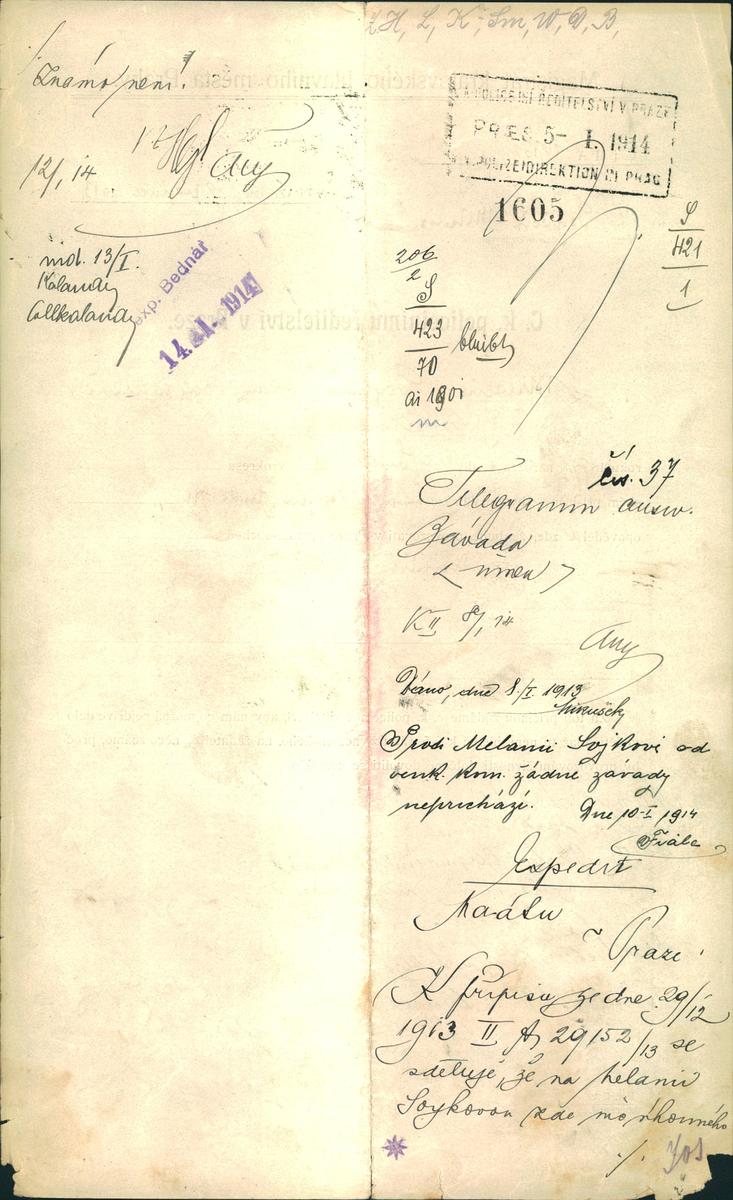 Z H, L, K, Sm, W, D, B,
C.K. POLICEJNÍ ŘEDITELSTVÍ V PRAZE
PRES 5- I. 1914
K.K. POLIZEIDIREKTION IN PRAG
1605
S
421
1
206
2
S
423
70 bleibt
ai 1901
čís. 37
Telegramm ausw.
Závada
K II 8/1 14
Dáno, dne 8./I. 1913
Mikušek
Proti Melanii Sojkové od
venk. kom. žádné závady
nepřichází. Dne 10-I 1914
Fiala
Expedit
Praze
K přípisu ze dne 29/12
1913 II A 29152/13 se
sděluje, že na Melanii
Soykovou zde nic úhonného
./.
/.
Známo není.
12/1 14
mdt. 13/I.
Kalandy
Collkalandy
exp. Bednář
14. I. 1914